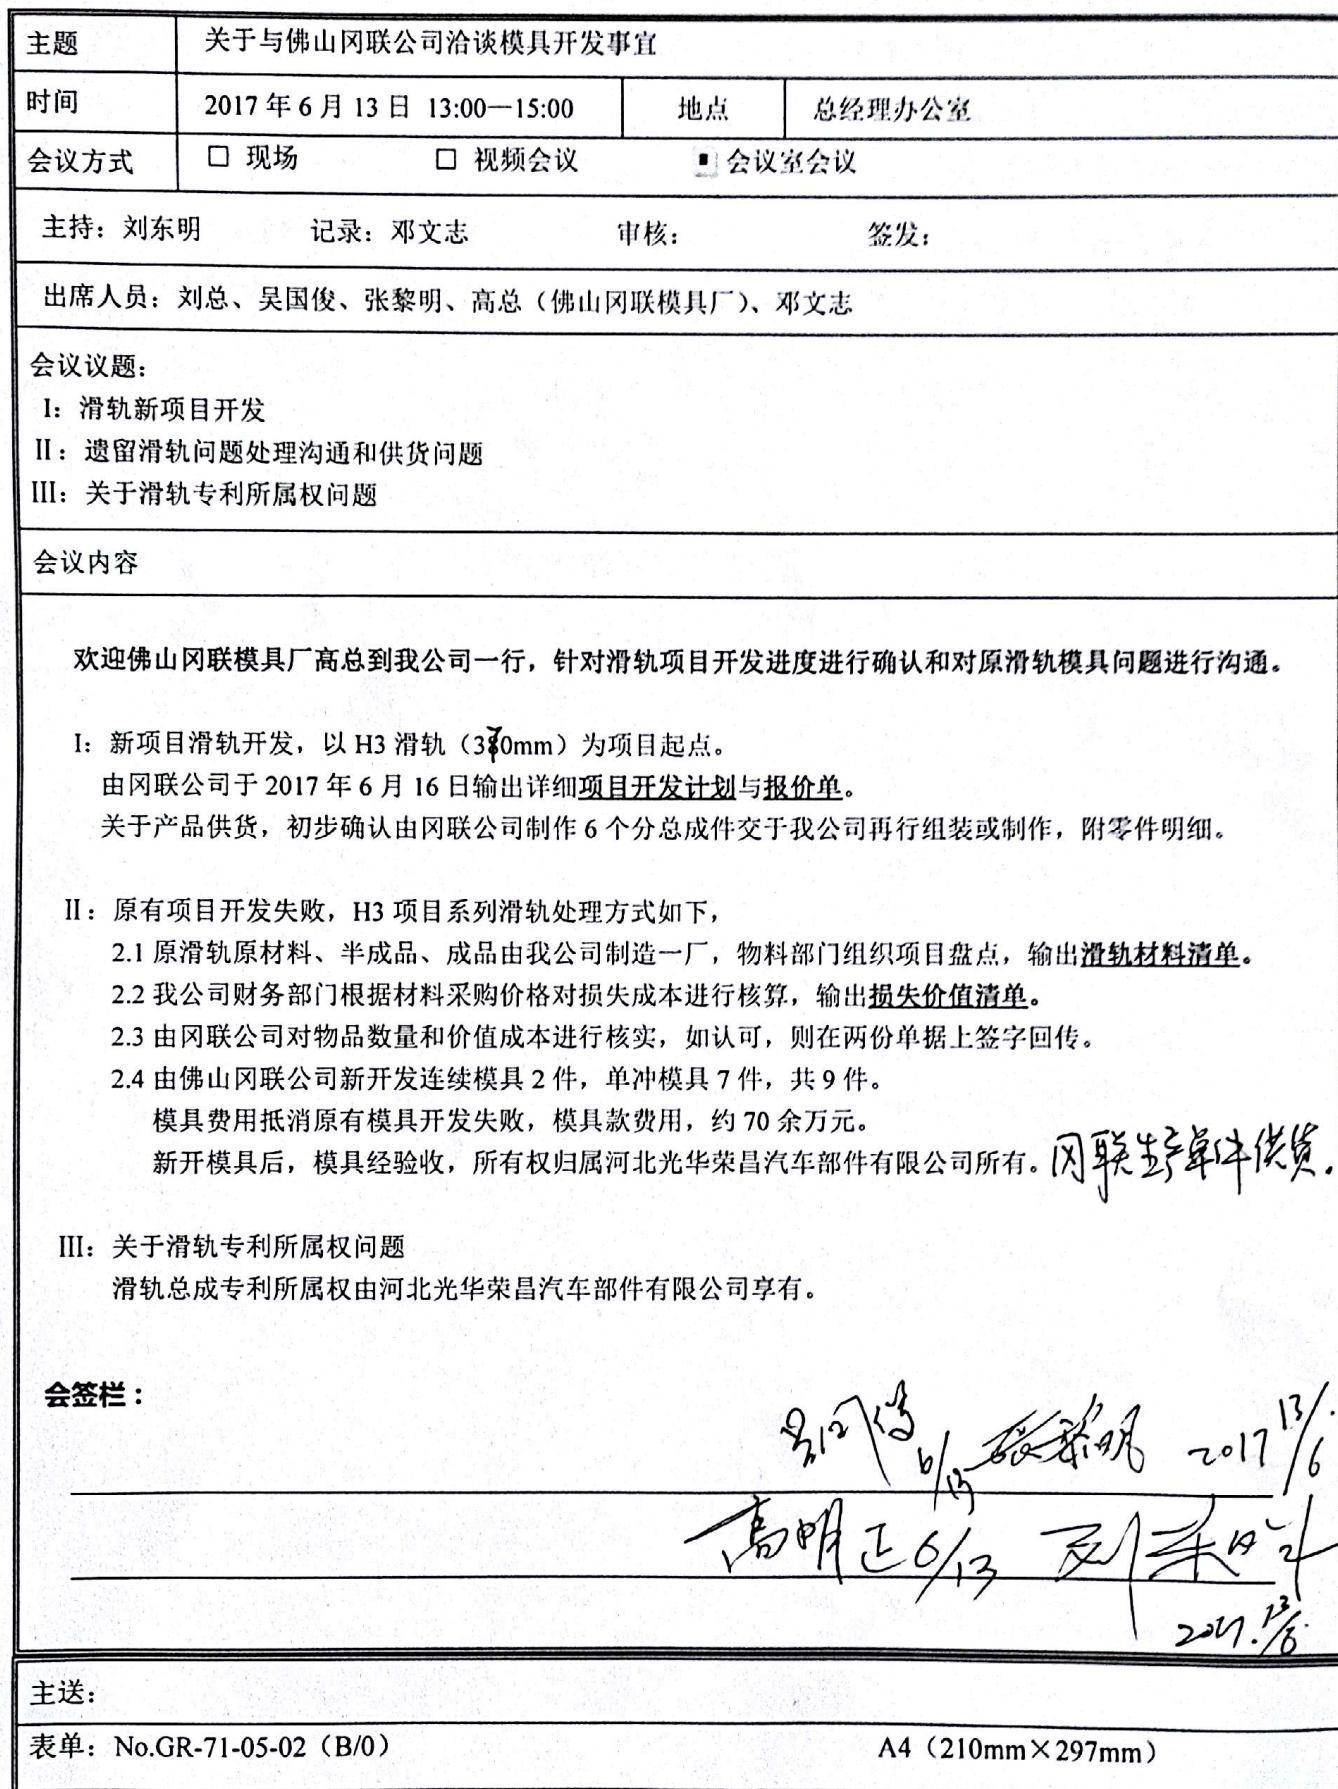 主题 关于与佛山冈联公司洽谈模具开发事宜
时间 2017 年 6 月 13 日 13:00—15:00 地点 总经理办公室
会议方式 □ 现场 □ 视频会议 ■ 会议室会议
主持：刘东明 记录：邓文志 审核： 签发：
出席人员：刘总、吴国俊、张黎明、高总（佛山冈联模具厂）、邓文志
会议议题：
I：滑轨新项目开发
II：遗留滑轨问题处理沟通和供货问题
III：关于滑轨专利所属权问题
会议内容
欢迎佛山冈联模具厂高总到我公司一行，针对滑轨项目开发进度进行确认和对原滑轨模具问题进行沟通。
I：新项目滑轨开发，以 H3 滑轨（370mm）为项目起点。
由冈联公司于 2017 年 6 月 16 日输出详细项目开发计划与报价单。
关于产品供货，初步确认由冈联公司制作 6 个分总成件交于我公司再行组装或制作，附零件明细。
II：原有项目开发失败，H3 项目系列滑轨处理方式如下，
2.1 原滑轨原材料、半成品、成品由我公司制造一厂，物料部门组织项目盘点，输出滑轨材料清单。
2.2 我公司财务部门根据材料采购价格对损失成本进行核算，输出损失价值清单。
2.3 由冈联公司对物品数量和价值成本进行核实，如认可，则在两份单据上签字回传。
2.4 由佛山冈联公司新开发连续模具 2 件，单冲模具 7 件，共 9 件。
模具费用抵消原有模具开发失败，模具款费用，约 70 余万元。
新开模具后，模具经验收，所有权归属河北光华荣昌汽车部件有限公司所有。冈联生产单件供货。
III：关于滑轨专利所属权问题
滑轨总成专利所属权由河北光华荣昌汽车部件有限公司享有。
会签栏：
吴国俊 6/13 张黎明 2017 13/6
高明正 6/13 刘东明
2017.13/6
主送：
表单：No.GR-71-05-02（B/0） A4（210mm×297mm）